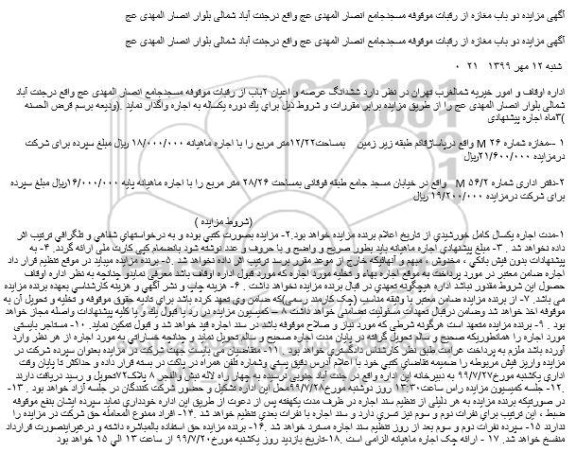 آگهی مزایده دو باب مغازه از رقبات موقوفه مسجدجامع انصار المهدی عج واقع درجنت آباد شمالی بلوار انصار المهدی عج
آگهی مزایده دو باب مغازه از رقبات موقوفه مسجدجامع انصار المهدی عج واقع درجنت آباد شمالی بلوار انصار المهدی عج
شنبه ۱۲ مهر ۱۳۹۹ ۲۱ ۰
اداره اوقاف و امور خیریه شمالغرب تهران در نظر دارد ششدانگ عرصه و اعیان ۲باب از رقبات موقوفه مسجدجامع انصار المهدی عج واقع درجنت آباد
شمالی بلوار انصار المهدی عج را از طریق مزایده برابر مقررات و شروط ذیل برای یك دوره یکساله به اجاره واگذار نماید .(ودیعه برسم قرض الحسنه
۳(ماه اجاره پیشنهادی
۱ –-مغازه شماره M ۲۶ واقع درپاساژقائم طبقه زیر زمین بمساحت۱۲/۲۲متر مربع را با اجاره ماهیانه ۱۸/۰۰۰/۰۰۰ ریال مبلغ سپرده برای شرکت
درمزایده ۲۱/۶۰۰/۰۰۰ریال
۲-دفتر اداری شماره ۵۶/۲ M واقع در خیابان مسجد جامع طبقه فوقانی بمساحت ۲۸/۲۶ متر مربع را با اجاره ماهیانه پایه ۱۶/۰۰۰/۰۰۰ریال مبلغ سپرده
برای شرکت درمزایده ۱۹/۲۰۰/۰۰۰ ریال
(شروط مزایده )
۱-مدت اجاره یکسال کامل خورشیدی از تاریخ اعلام برنده مزایده خواهد بود.۲- مزایده بصورت کتبی بوده و به درخواستهای شفاهی و تلگرافی ترتیب اثر
داده نخواهد شد . ۳- مبلغ پیشنهادی اجاره ماهیانه باید بطور صریح و واضح و با حروف و عدد نوشته شود بانضمام کپی کارت ملی ارائه گردد. ۴- به
پیشنهادات بدون فیش بانکی ، مخدوش ، مبهم و آنهائیکه خارج از موعد مقرر برسد ترتیب اثر داده نخواهد شد . ۵-برنده مزایده میباید در موقع تنظیم قرار داد
اجاره ضامن معتبر در مورد پرداخت به موقع اجاره بهاء و تخلیه مورد اجاره که مورد قبول اداره اوقاف باشد معرفی نمایدو چنانچه به نظر اداره اوقاف
حصول این شروط مقدور نباشد اداره هیچگونه تعهدی در قبال برنده مزایده نخواهد داشت . ۶- هزینه چاپ و نشر آگهی و هزینه کارشناسی بعهده برنده مزایده
می باشد. ۷- از برنده مزایده ضامن معتبر با وثیقه مناسب (چک کارمند رسمی)که ضامن وی تعهد کرده باشد برای تادیه حقوق موقوفه و تخلیه و تحویل آن به
موقوفه اخذ خواهد شد وضامن درقبال تعهدات مسئولیت تضامنی خواهد داشت.۸- کمیسیون مزایده در رد یا قبول یك و یا کلیه پیشنهادات واصله مجاز خواهد
بود . ۹- برنده مزایده متعهد است هرگونه شرطی که مورد نیاز و صلاح موقوفه باشد در سند اجاره قید خواهد شد و قبول تمکین نماید. ۱۰- مستاجر بایستی
مورد اجاره را همانطوریکه صحیح و سالم تحویل گرفته در پایان مدت اجاره صحیح و سالم تحویل نماید و چنانچه خساراتی به مورد اجاره از هر نظر وارد
آورده باشد ملزم به پرداخت غرامت طبق نظر کارشناس دادگستری خواهد بود . ۱۱- متقاضیان می بایست جهت شرکت در مزایده بعنوان سپرده شرکت در
مزایده واریز فیش مربوطه را ضمیمه تقاضای کتبی خود با اعلام آدرس دقیق پستی وشماره تلفن همراه در پاکت در بسته قرار داده و حداکثر تا پایان وقت
اداری یکشنبه مورخ۹۹/۷/۲۷ به دبیرخانه این اداره واقع در جنت آباد جنوبی نرسیده به چهار راه لاله نبش والفجر ۸ پلاک۷۲تحویل و رسید دریافت دارند
.۱۲- جلسه کمیسیون مزایده راس ساعت۱۳:۳۰ روز دوشنبه مورخ۹۹/۷/۲۸محل این اداره تشکیل و حضور شرکت کنندگان در جلسه آزاد خواهد بود . ۱۳-
در صورتیکه برنده مزایده به هر دلیلی از تنظیم سند اجاره در ظرف مدت یکهفته پس از دعوت از طریق این اداره خودداری نماید سپرده ایشان بنفع موقوفه
ضبط ، این ترتیب برای نفرات دوم و سوم نیز تسری دارد و سند اجاره با نفرات بعدی تنظیم خواهد شد .۱۴- افراد ممنوع المعامله حق شرکت در مزایده را
ندارند ۱۵- سپرده نفرات دوم و سوم بعد از روز تنظیم سند اجاره مسترد خواهد شد .۱۶- برنده مزایده حق استفاده بالمباشره داشته و درغیراینصورت قرارداد
منفسخ خواهد شد. ۱۷ - ارائه چک اجاره ماهیانه الزامی است .۱۸-تاریخ بازدید روز یکشنبه مورخ۹۹/۷/۲۰ از ساعت ۱۳ الي ۱۵ خواهد بود